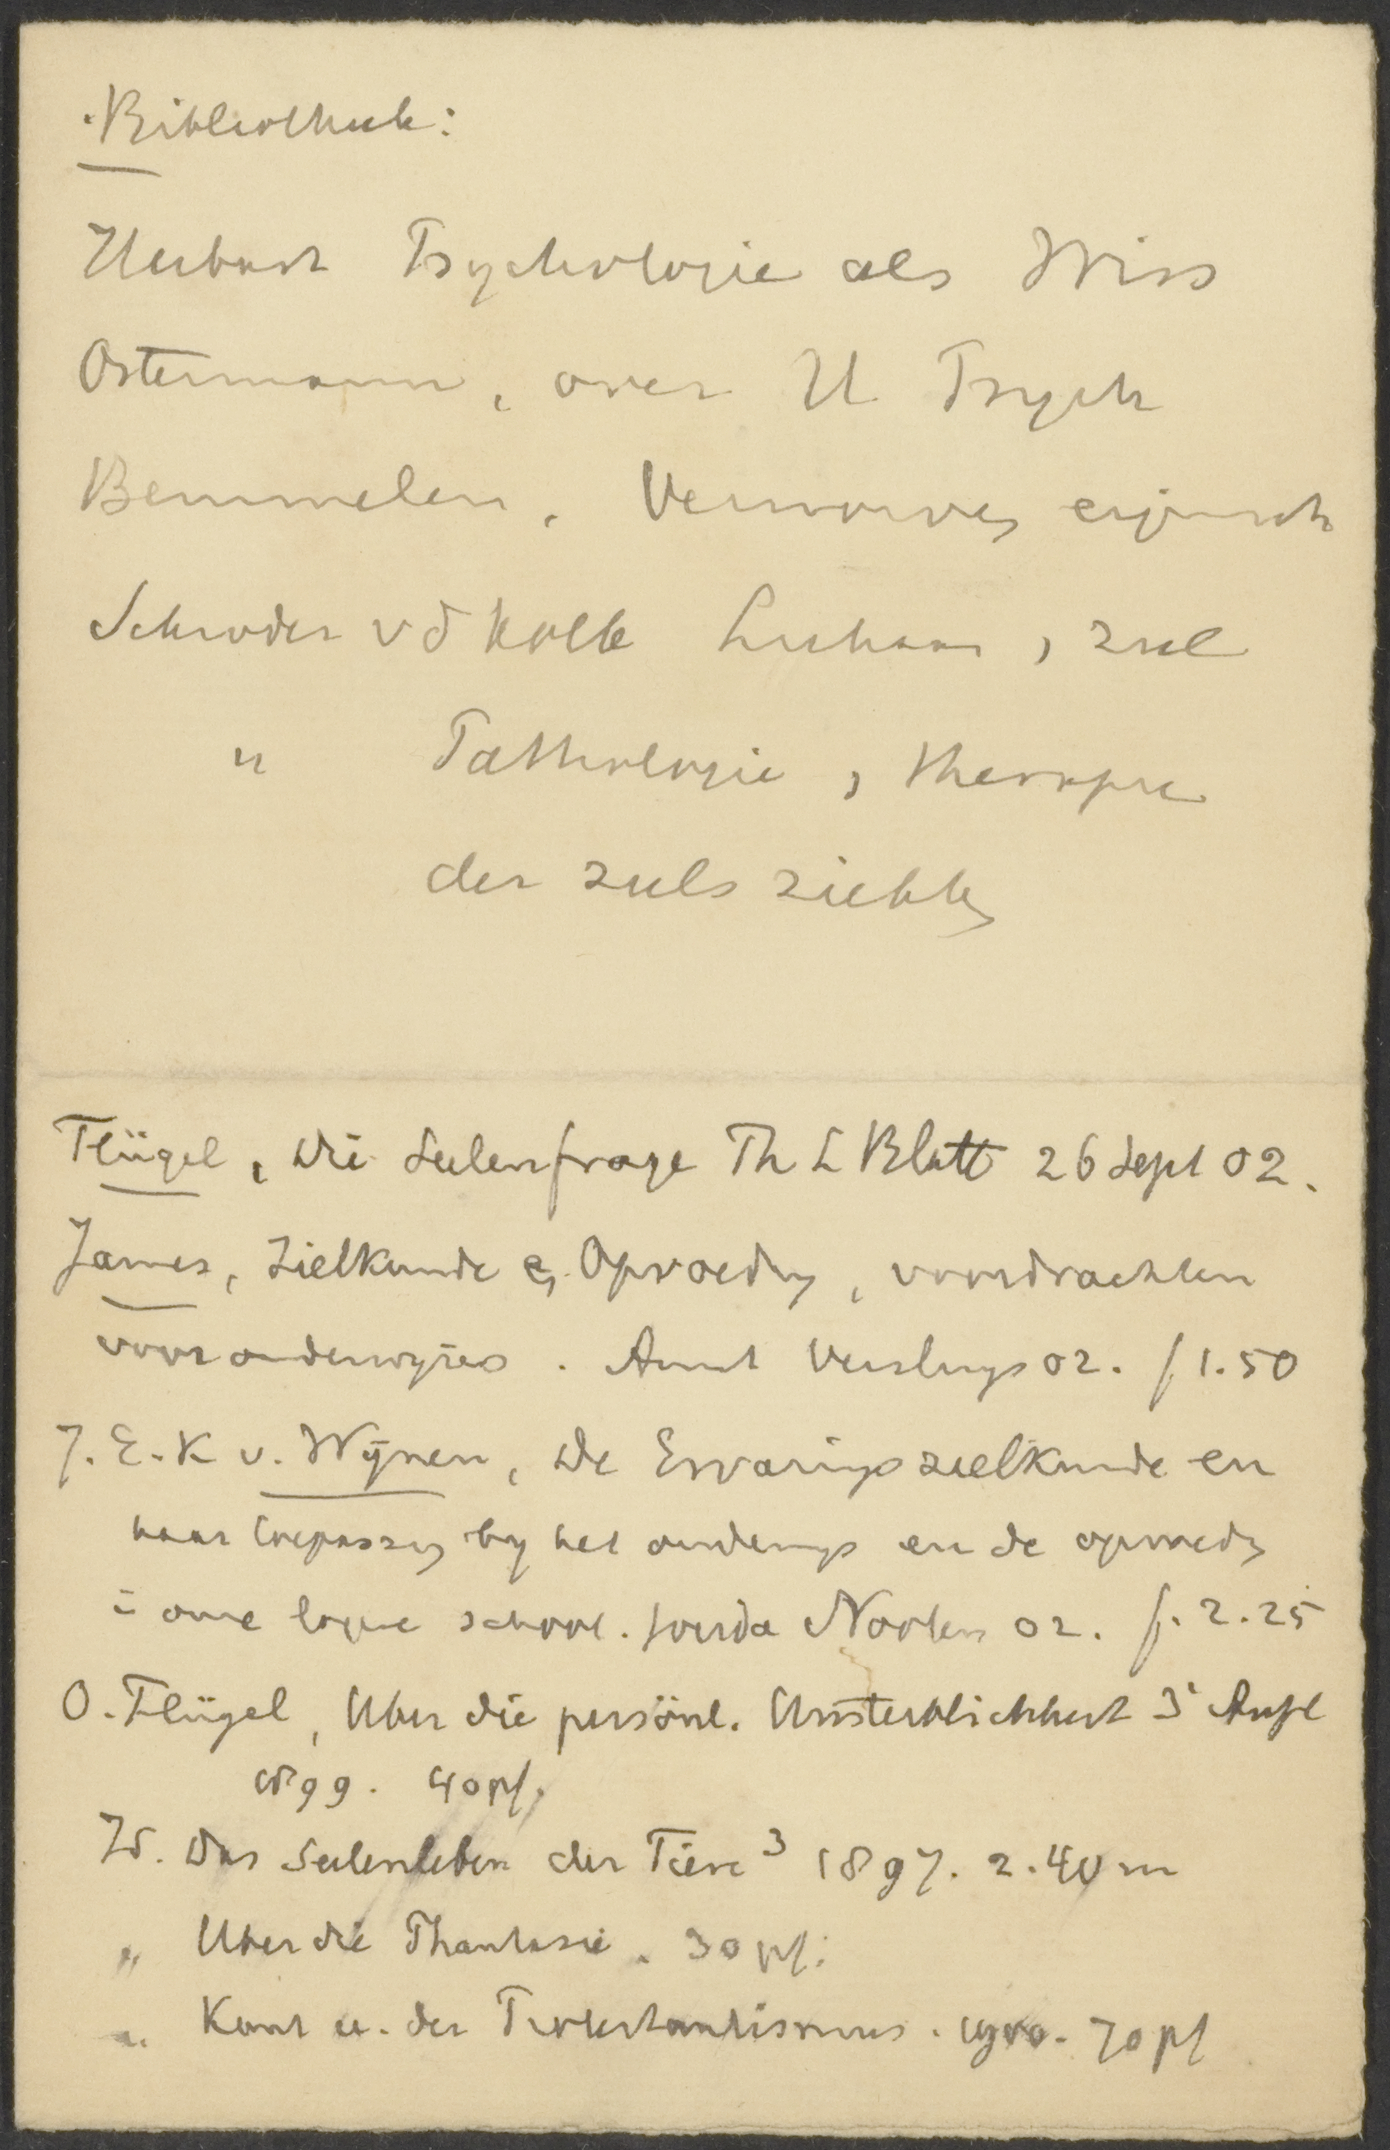 Bibliotheek:
Herbart Psychologie als Wiss
Ostermann, over H Psych
Bemmelen, Verworven eigensch
Schroder v d Kolk Lichaam, ziel
" Pathologie, therapie
der zielsziekten
Flügel, Die Seelenfrage Th L Blatt 26 Sept 02.
James, Zielkunde en Opvoeding, voordrachten
voor onderwijzers. Amst Versluys 02. f 1.50
J. E. K v. Wijnen, De Ervaringszielkunde en
haar toepassing bij het onderwijs en de opvoeding
in onze lagere school. Gouda Noorten 02. f. 2.25
O. Flügel, Uber die persönl. Unsterblichkeit 3e Aufl
1899. 40 pf.
Id. Das Seelenleben der Tiere 3 1897. 2.40 m
" Uber die Phantasie. 30 pf.
" Kant u. der Protestantismus. 1900. 70 pf